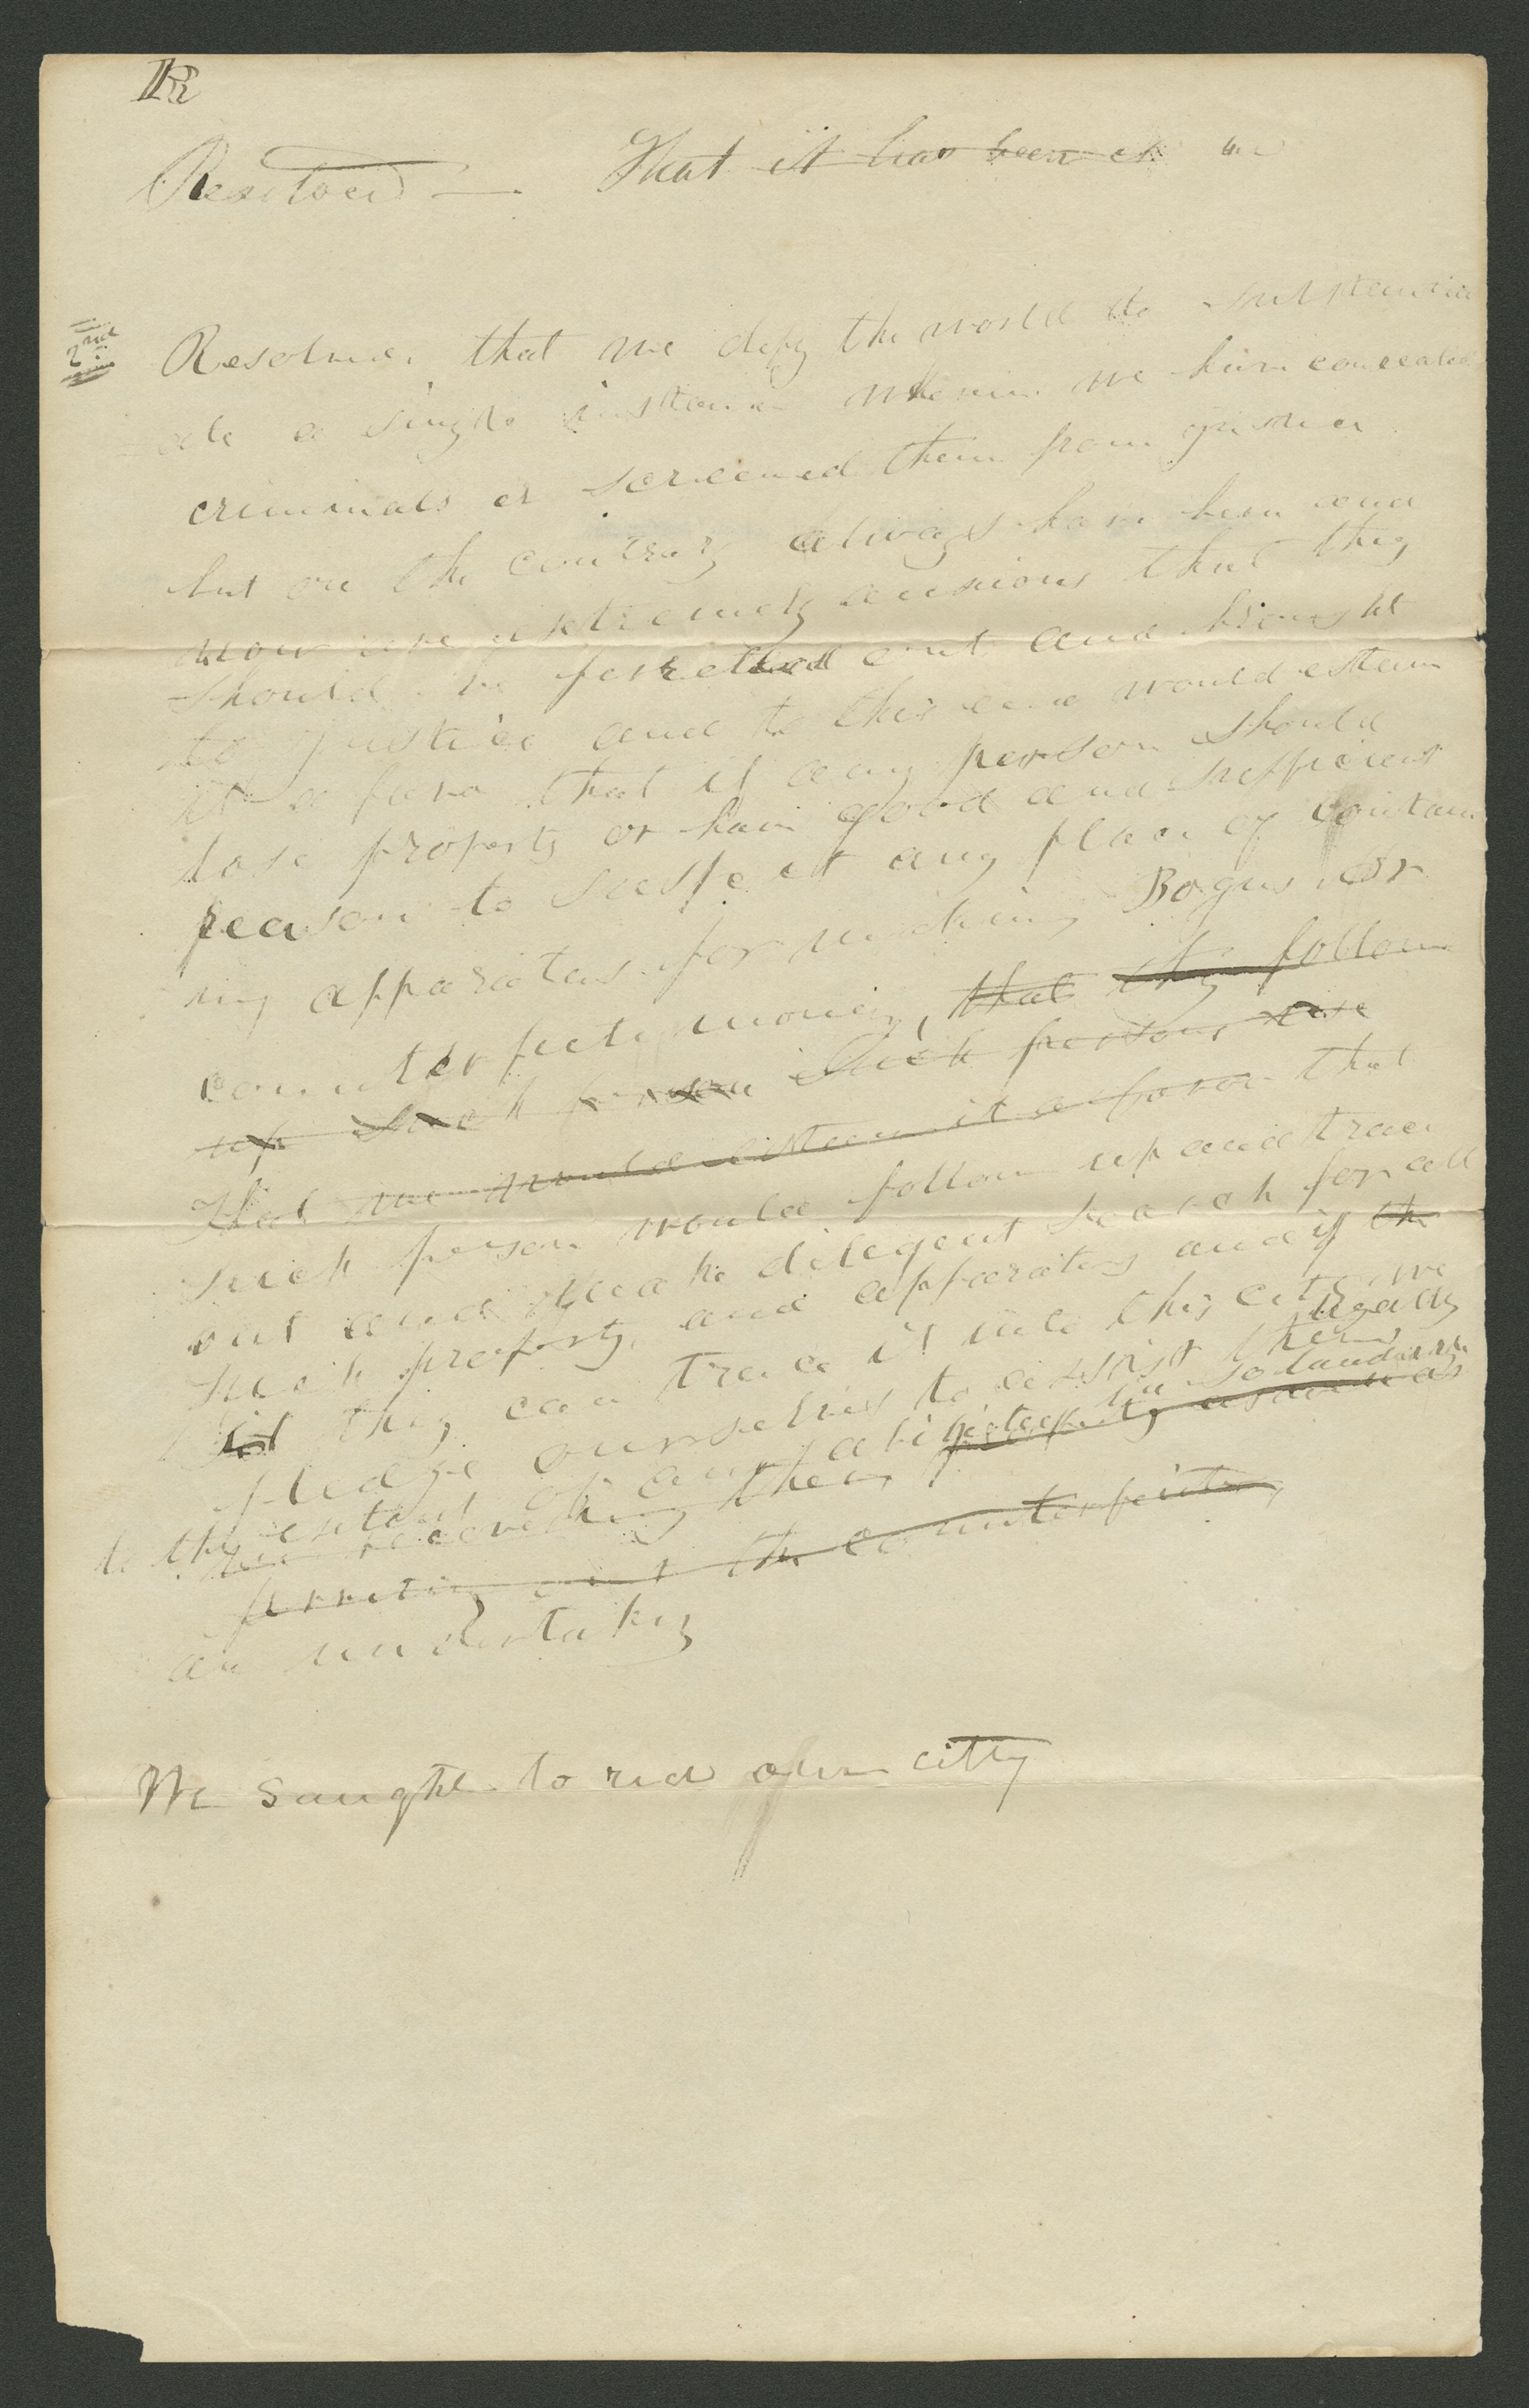 R
Resolved — That it has been ch we
2nd Resolved, that we defy the world to substanci
ate a single instance wherein we have concealed
criminals or screened them from justice
but on the contrary always have been and
now are extremely anxious that they
should be ferretted out and brought
to justice and to this end would esteem
it a favor that if any person should
lose property or have good and sufficient
reason to suspect any place of contain
ing apparatus for making Bogus or
counterfeit money, that they follow
up such person such persons use
That we would esteem it a favor that
such person would follow up and trace
out and make diligent search for all
such property, and apparatus and if the
if they can trace it into this city we
pledge ourselves to assist them legally
to the extent of our abilities in so laudable
in recovering their property as well as
ferreting out the counterfeiters
an undertaking
We saught to rid our citty